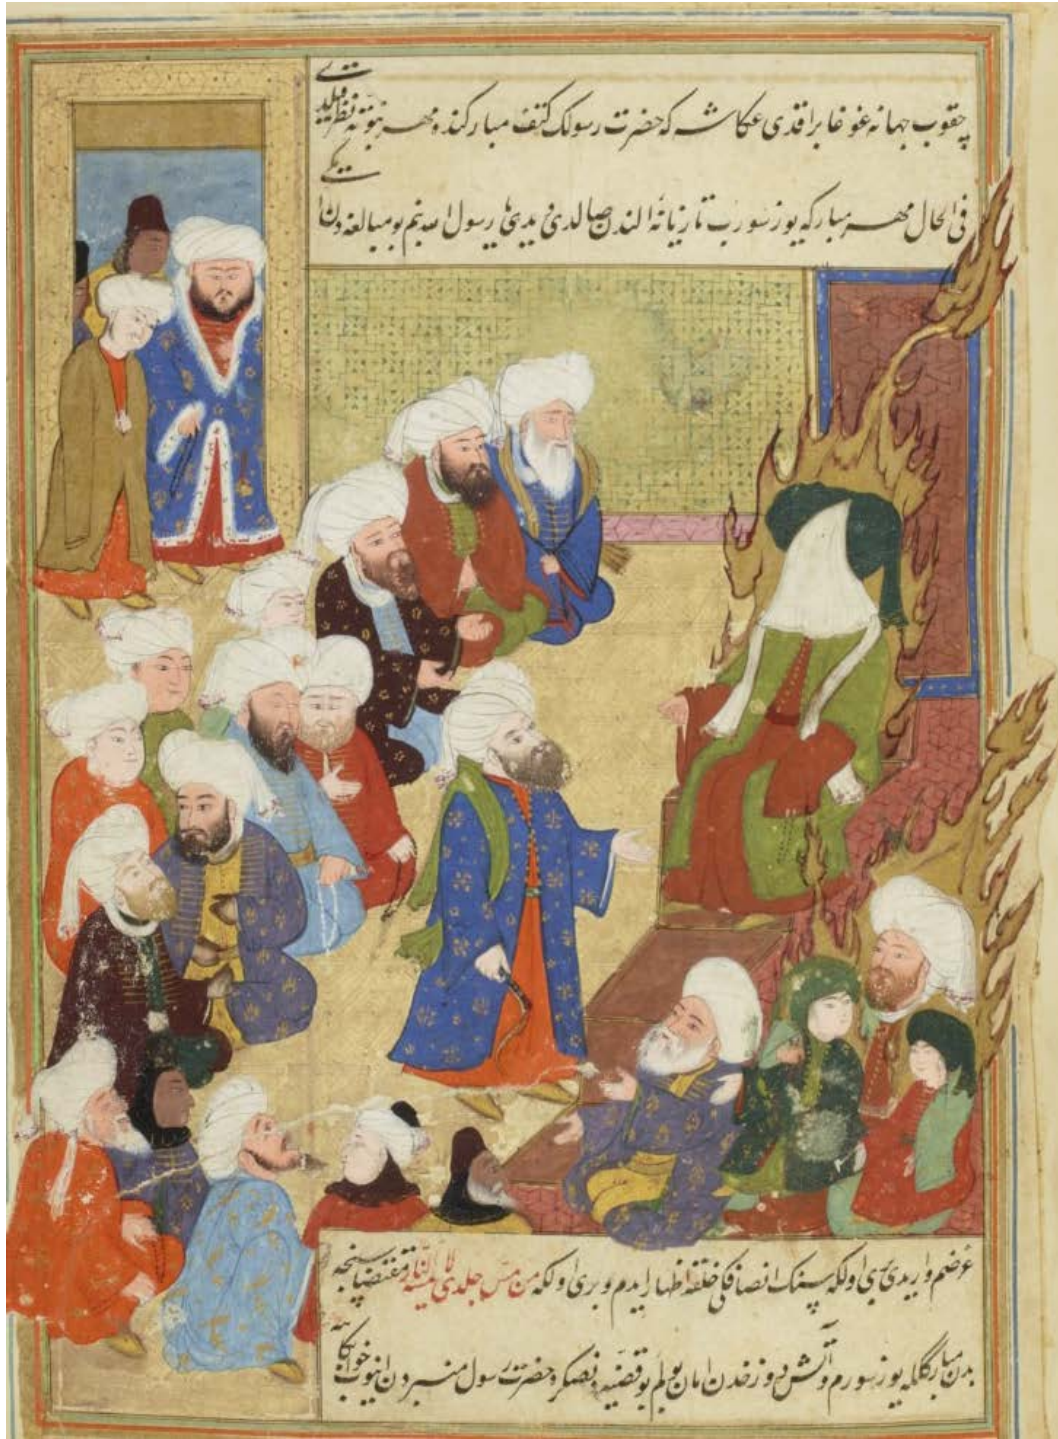 چقوب جهانه غوغا براقدی عکاشه که حضرت رسولك کتف مبارکنده مهر نبوته نظر قیلدی
فی الحال مهر مبارکه یوز سورب تازیانه الندن صالدی دیدی یا رسول الله بنم بو مبالغه دن
غرضم واریدی بری اولکه سنك انصافکی خلقه اظهار ایدم و بری اولکه من مس جلدی لا یمسه النار مقتضاسنجه
بدن مبارککله یوز سورم و آتش دوزخدن امان بولم بو قضیه دنصکره حضرت رسول منبردن اینوب